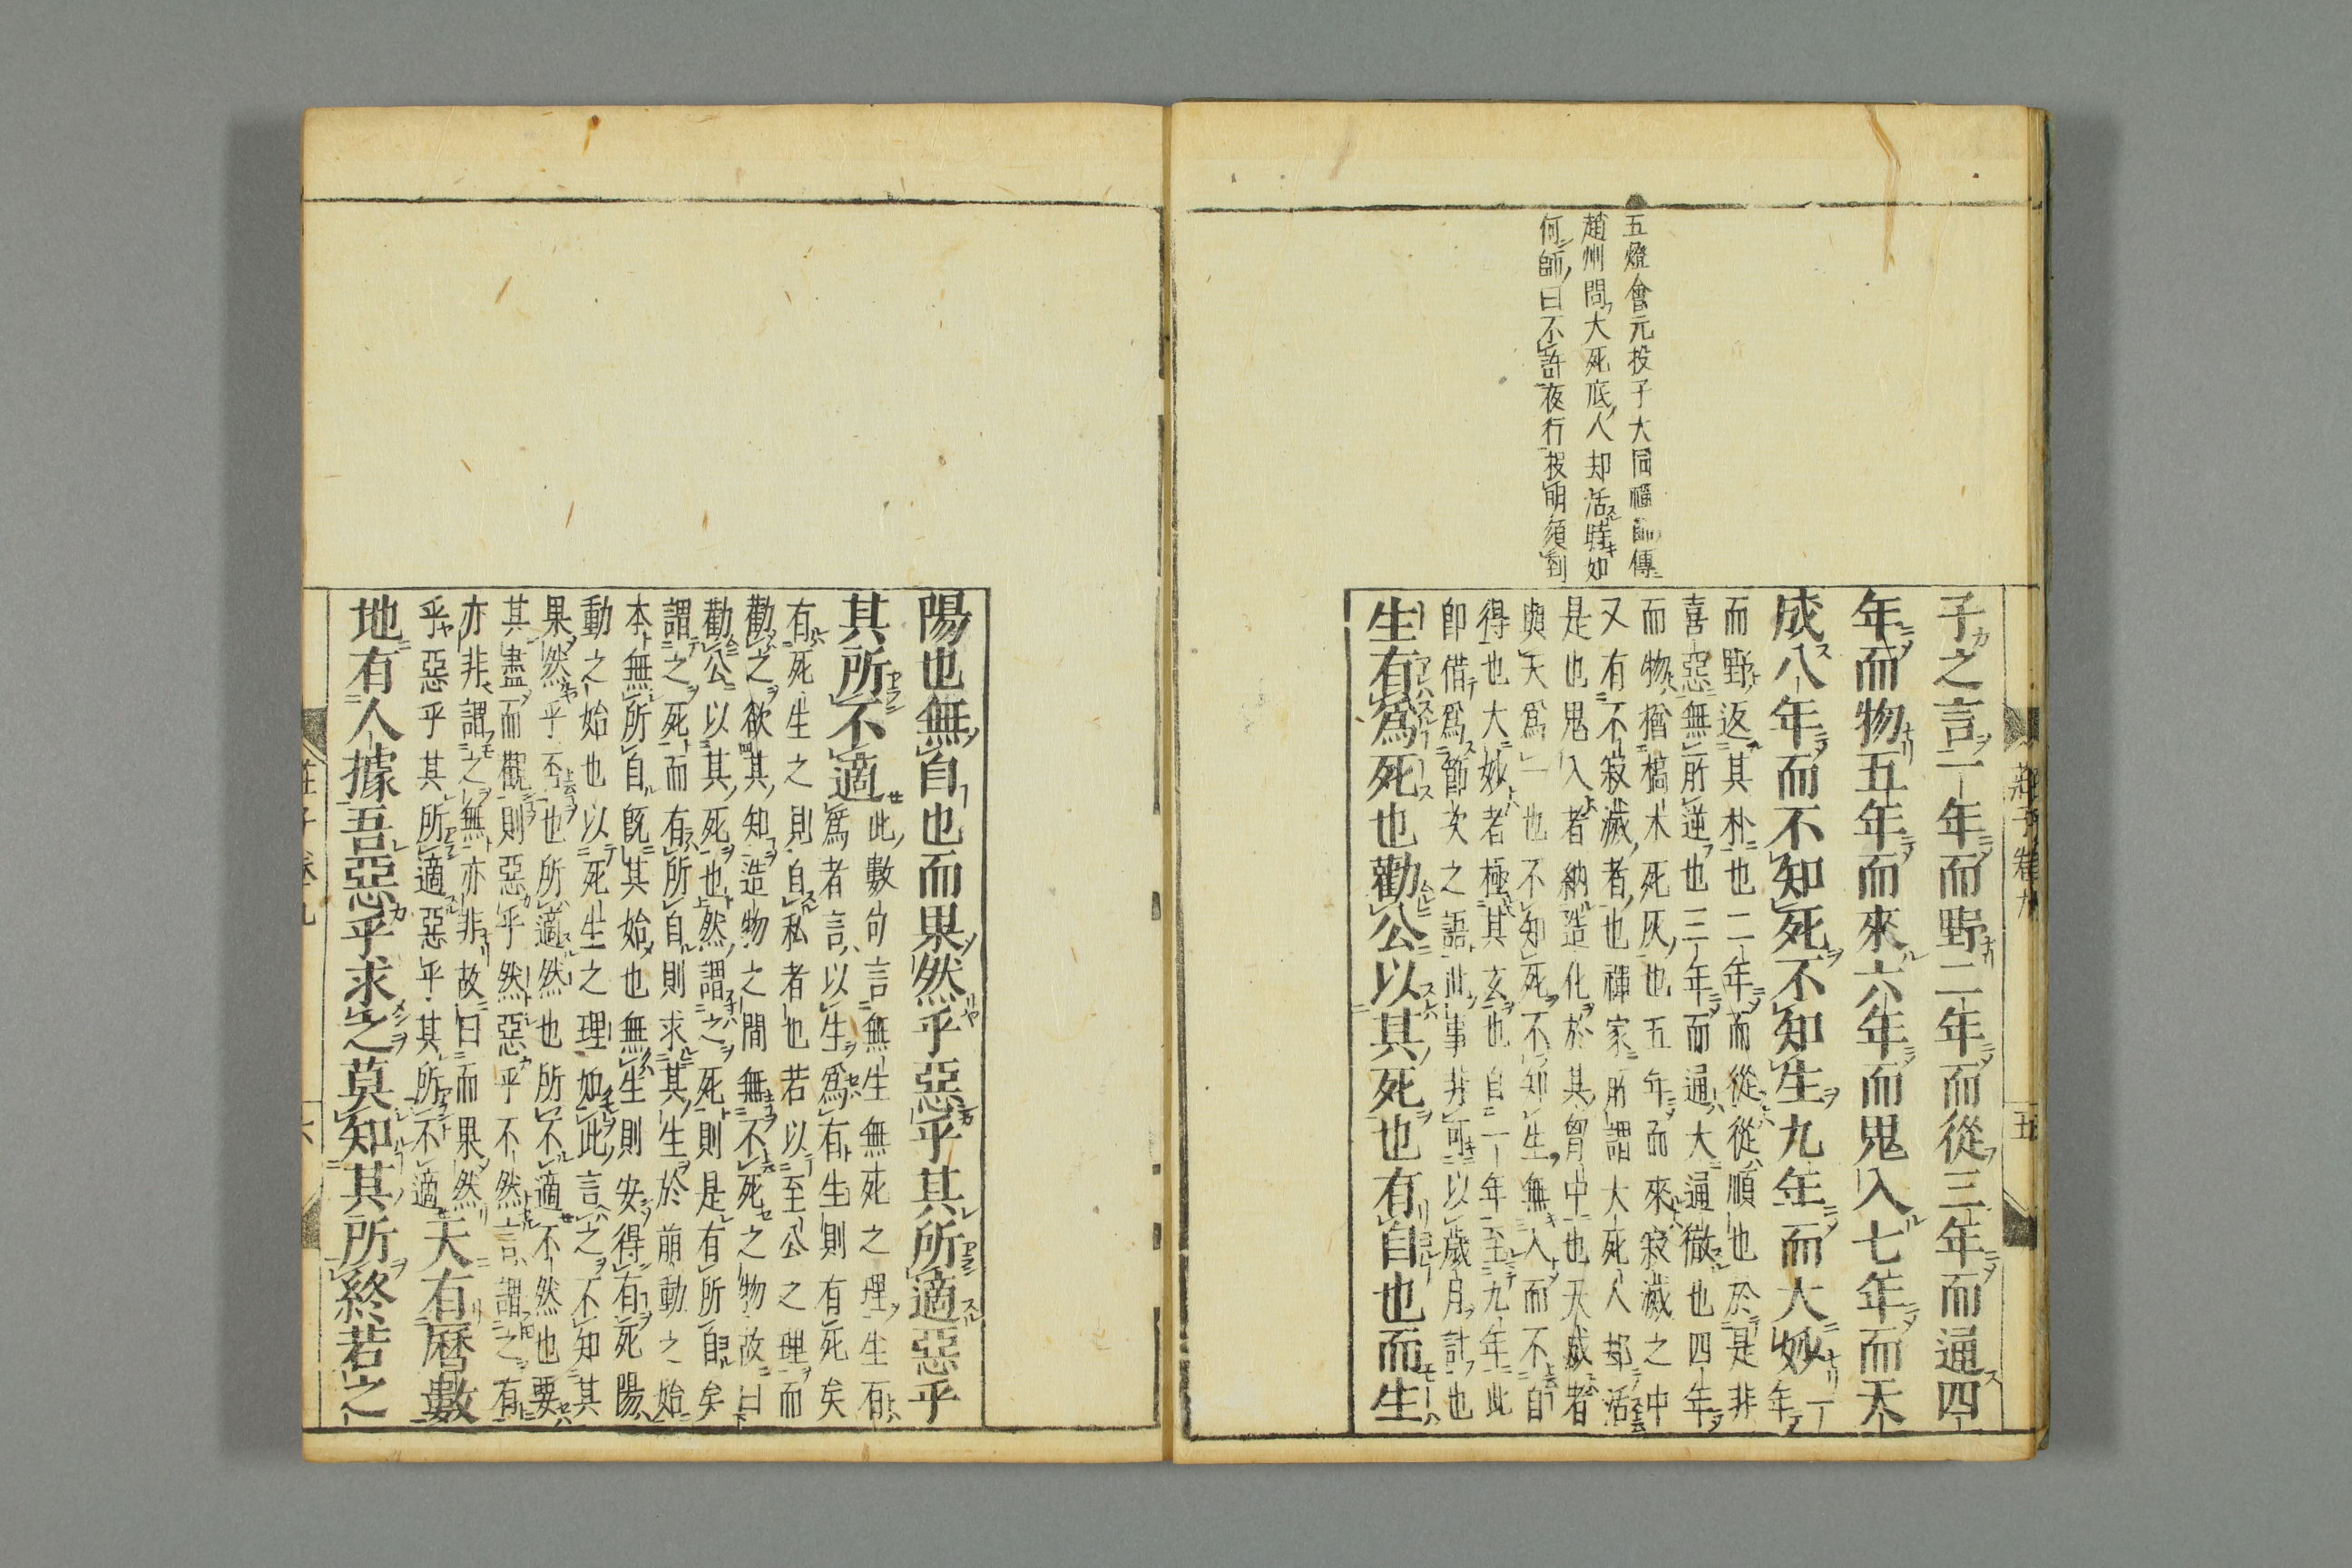 五燈會元投子大同禪師傳
趙州問大死底人却活時如
何師曰不許夜行投明須到
子之言一年而野二年而從三年而通四
年而物五年而來六年而鬼入七年而天
成八年而不知死不知生九年而大妙一年
而野返其朴也二年而從從順也於是非
喜惡無所逆也三年而通大通徹也四年
而物猶槁木死灰也五年而來寂滅之中
又有不寂滅者也禪家所謂大死人却活
是也鬼入者納造化於其胷中也天成者
與天爲一也不知死不知生無入而不自
得也大妙者極其玄也自一年至九年此
即借爲節次之語此事非可以歲月計也
生有爲死也勸公以其死也有自也而生
莊子卷九
五
陽也無自也而果然乎惡乎其所適惡乎
其所不適此數句言無生無死之理生有
爲者言以生爲有生則有死矣
有死生之則自私者也若以至公之理而
勸之欲其知造物之間無不死之物故曰
勸公以其死也然謂之死則是有所自矣
謂之死而有所自則求其生於萠動之始
本無所自旣其始也無生則安得有死陽
動之始也以死生之理如此言之不知其
果然乎不也所適然也所不適不然也要
其盡而觀則惡乎然惡乎不然言謂之有
亦非謂之無亦非故曰而果然
乎惡乎其所適惡乎其所不適天有曆數
地有人據吾惡乎求之莫知其所終若之
莊子卷九
六